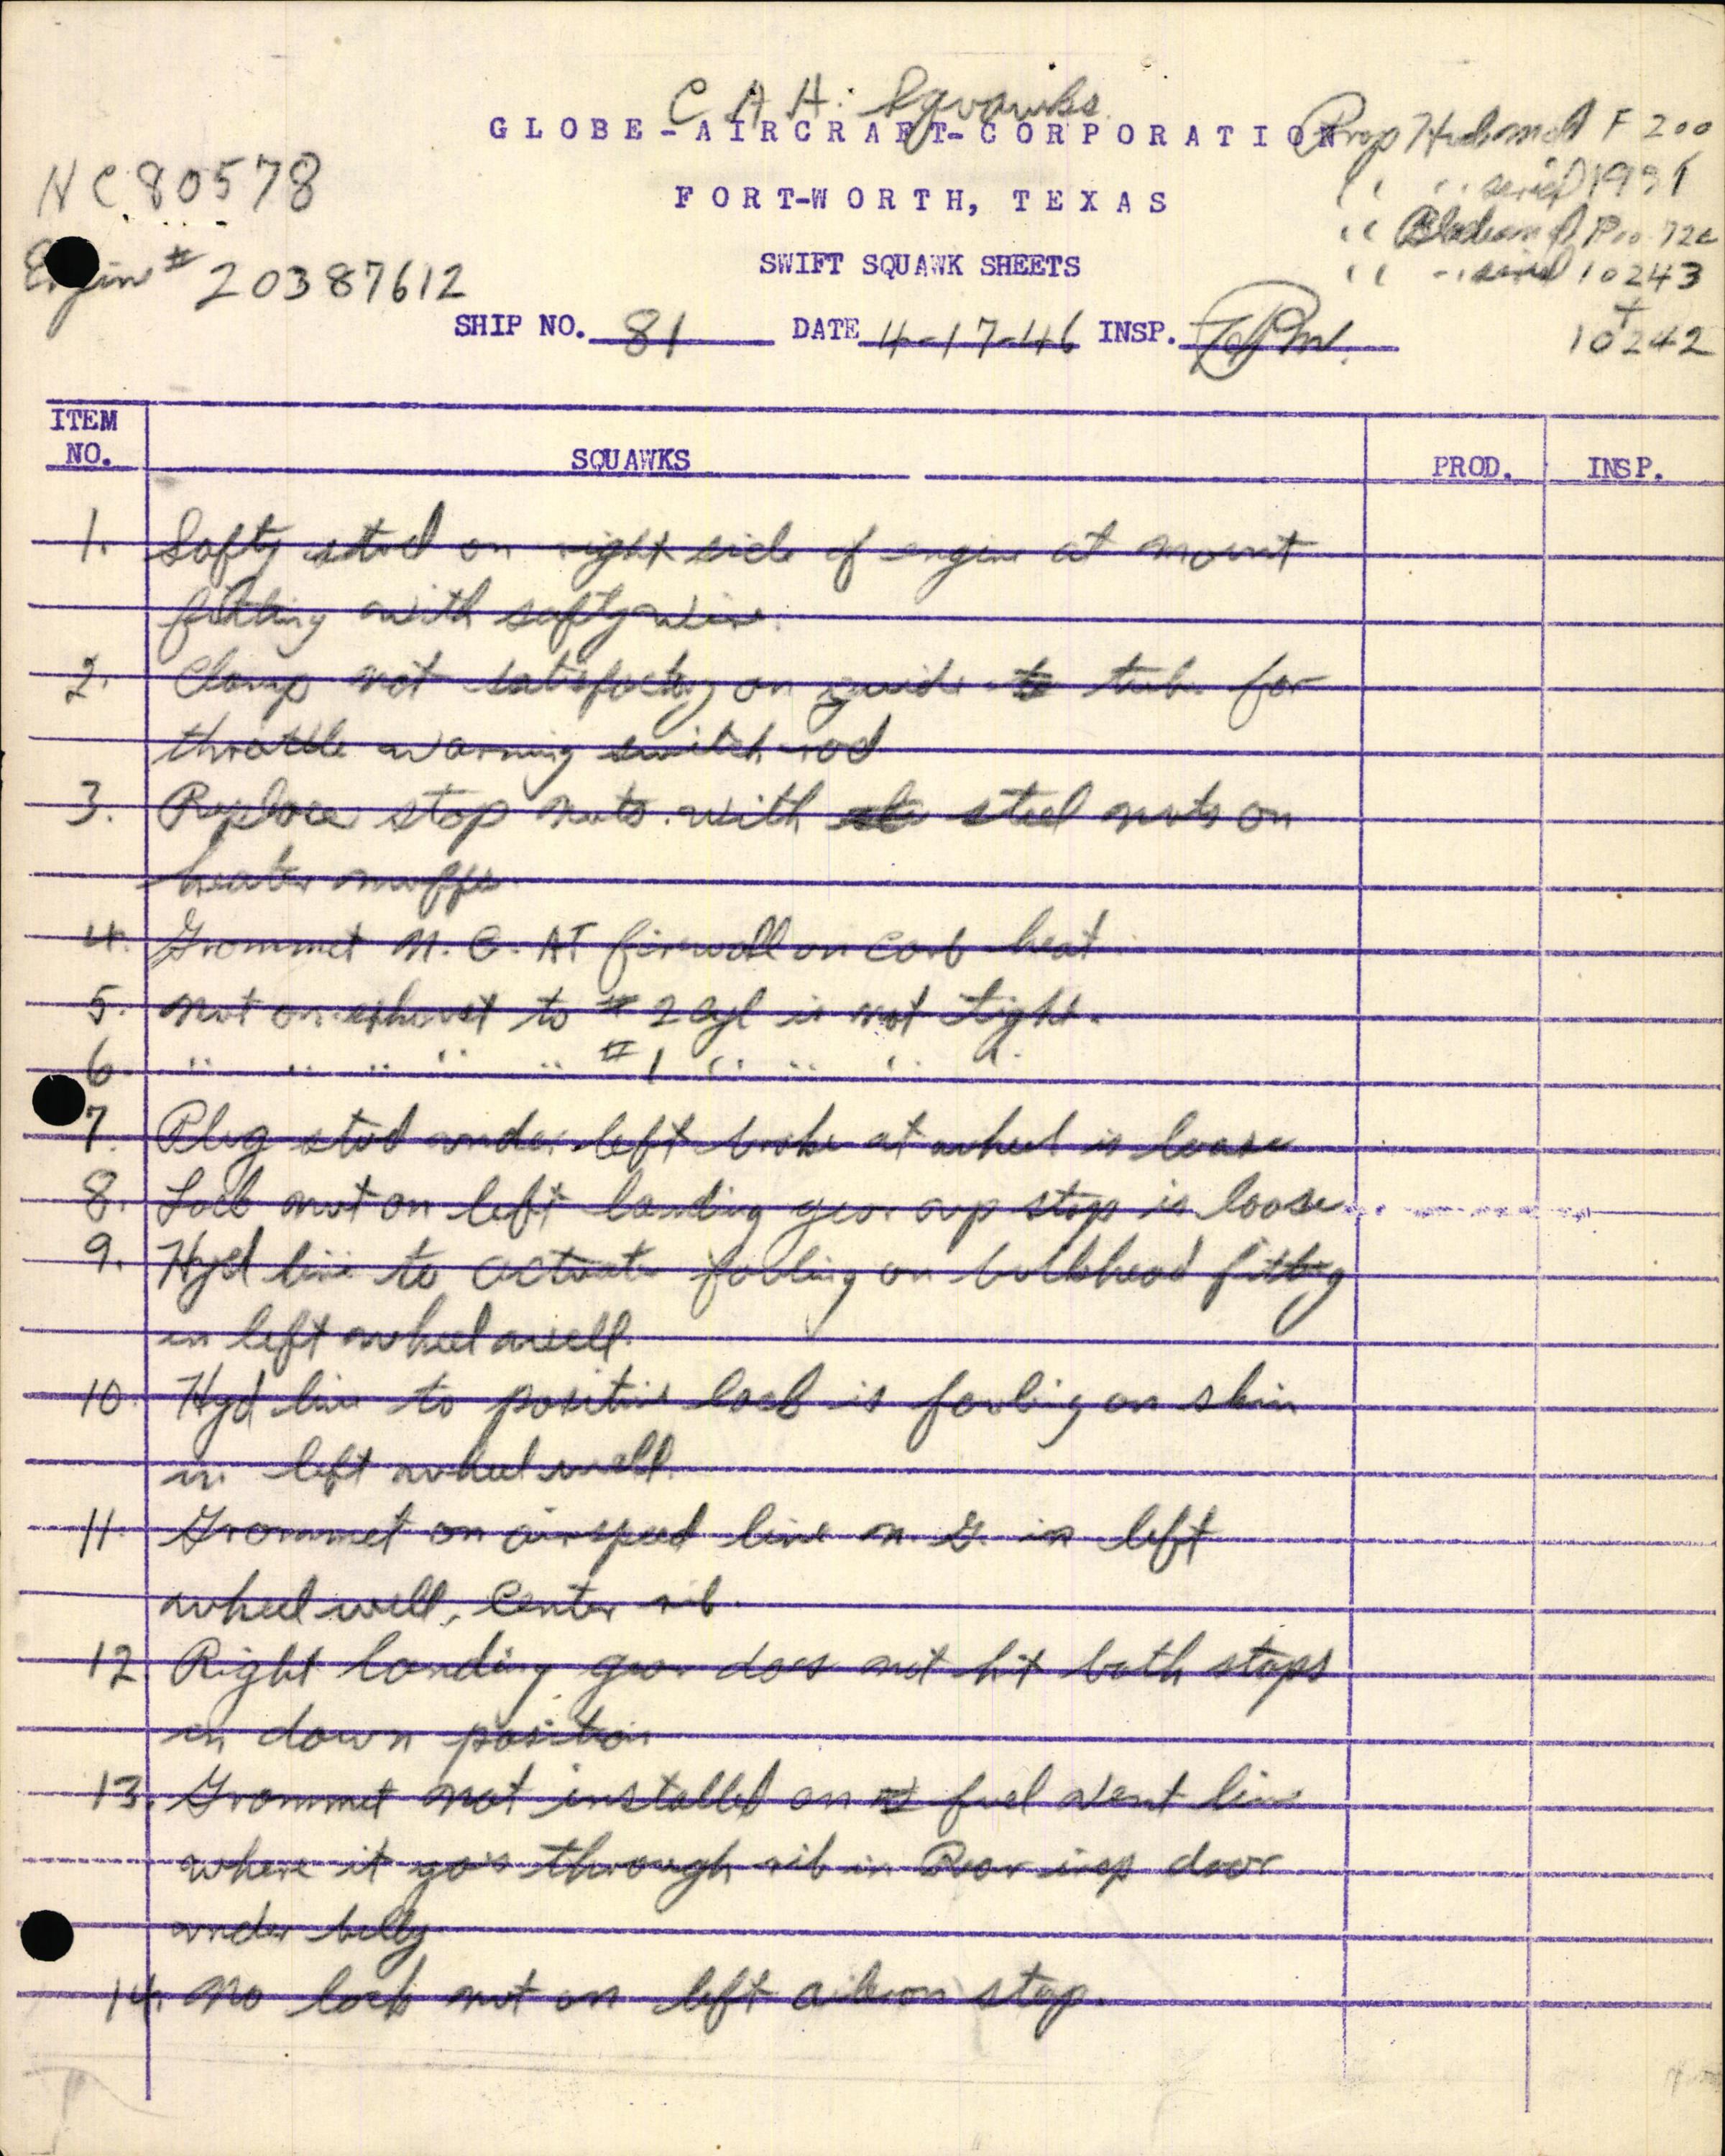 C A A. Squawks
GLOBE-AIRCRAFT-CORPORATION
FORT-WORTH, TEXAS
SWIFT SQUAWK SHEETS
NC 80578
Engine # 20387612
Prop Hub model F 200
" " serial 1991
" Blade model Pro 72
" " serial 10243
+
10242
SHIP NO. 81 DATE 4-17-46 INSP.
ITEM NO. SQUAWKS PROD. INSP.
1. Safty stud on right side of engine at mount
fitting with safty wire.
2. Clamp not satisfactory on guide tube for
throttle warning switch rod
3. Replace stop nuts with steel nuts on
heater muffs
4. Grommet N. G. AT firewall on carb heat
5. Nut on exhaust to #2 cyl is not tight.
6. " " " " " #1 " " " "
7. Plug stud under left brake at wheel is loose
8. Lock nut on left landing gear up stop is loose
9. Hyd line to actuator fouling on bulkhead fitting
in left wheel well.
10. Hyd line to positive lock is fouling on skin
in left wheel well.
11. Grommet on airspeed line n. g. in left
wheel well, center rib.
12. Right landing gear does not hit both stops
in down position
13. Grommet not installed on fuel vent line
where it goes through rib in Rear insp door
under belly
14. No lock nut on left aileron stop.